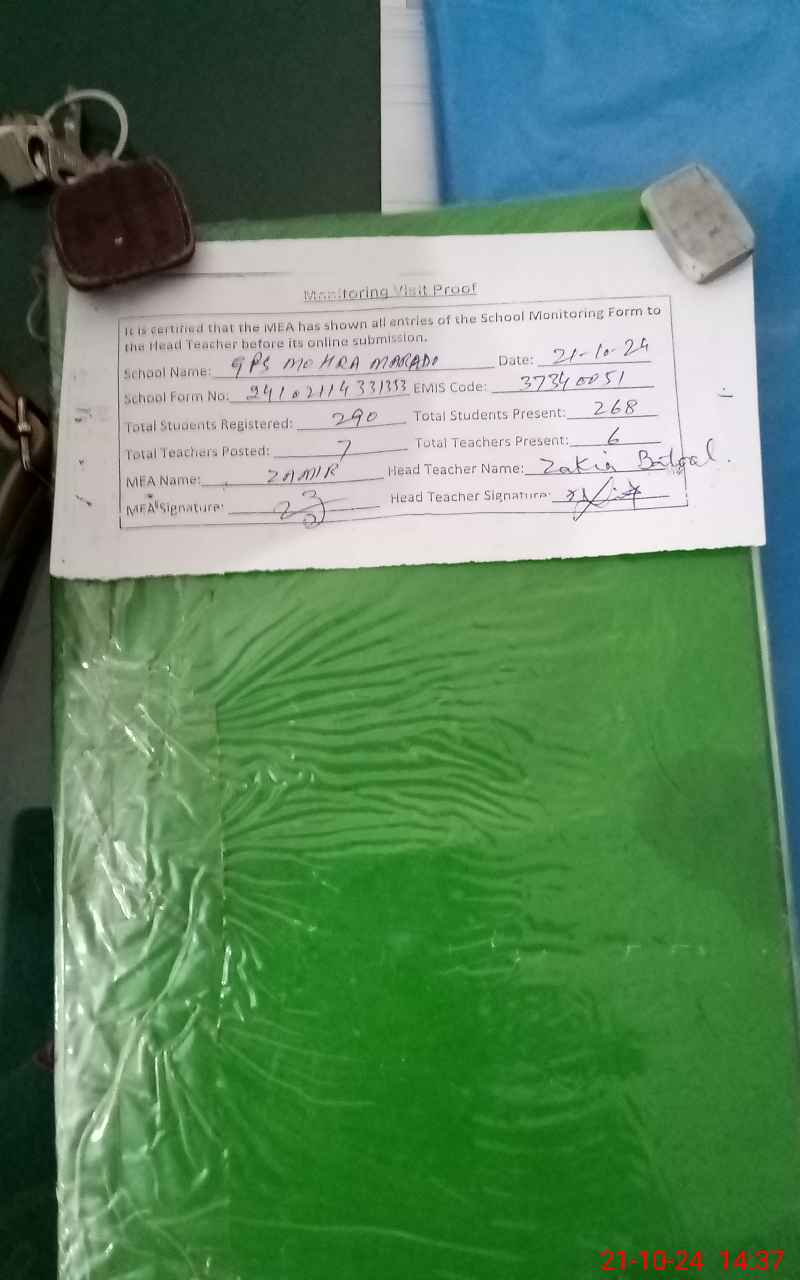 Monitoring Visit Proof
It is certified that the MEA has shown all entries of the School Monitoring Form to
the Head Teacher before its online submission.
School Name: GPS MOHRA MARADO Date: 21-10-24
School Form No: 24102114331353 EMIS Code: 37340051
Total Students Registered: 290 Total Students Present: 268
Total Teachers Posted: 7 Total Teachers Present: 6
MEA Name: ZAMIR Head Teacher Name: Zakia
MEA Signature: Head Teacher Signature:
21-10-24 14:37